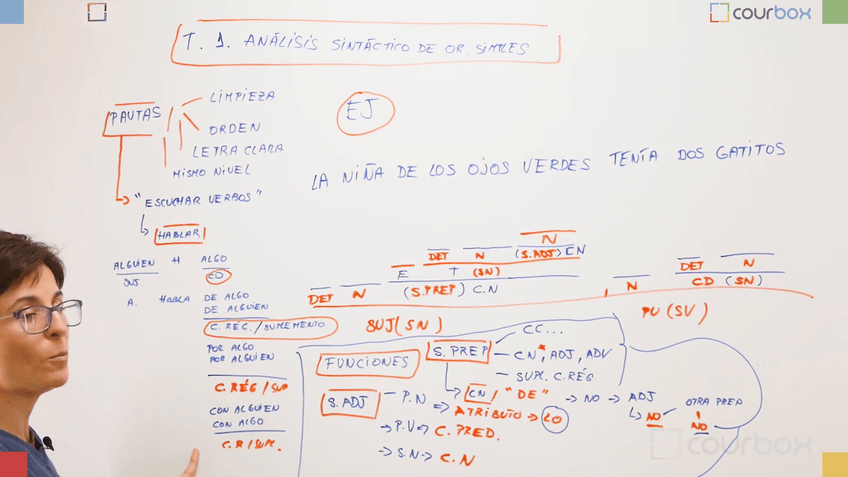 courbox
T. 1. ANÁLISIS SINTÁCTICO DE OR. SIMPLES
PAUTAS
LIMPIEZA
ORDEN
LETRA CLARA
MISMO NIVEL
"ESCUCHAR VERBOS"
HABLAR
EJ
LA NIÑA DE LOS OJOS VERDES TENÍA DOS GATITOS
ALGUIEN H ALGO
SUJ CD
A. HABLA DE ALGO
DE ALGUIEN
C. RÉG./SUPLEMENTO
POR ALGO
POR ALGUIEN
C. RÉG / SUP
CON ALGUIEN
CON ALGO
C.R/SUPL.
N
DET N (S.ADJ) CN
E T (SN)
DET N (S.PREP) C.N
SUJ (SN)
DET N
N CD (SN)
PV (SV)
FUNCIONES
S. PREP
CC...
CN, ADJ, ADV
SUPL. C. RÉG
CN / "DE" → NO → ADJ
NO OTRA PREP
NO
S. ADJ
P.N ⇒ ATRIBUTO → LO
→ P.V ⇒ C. PRED.
→ S.N → C.N
courbox